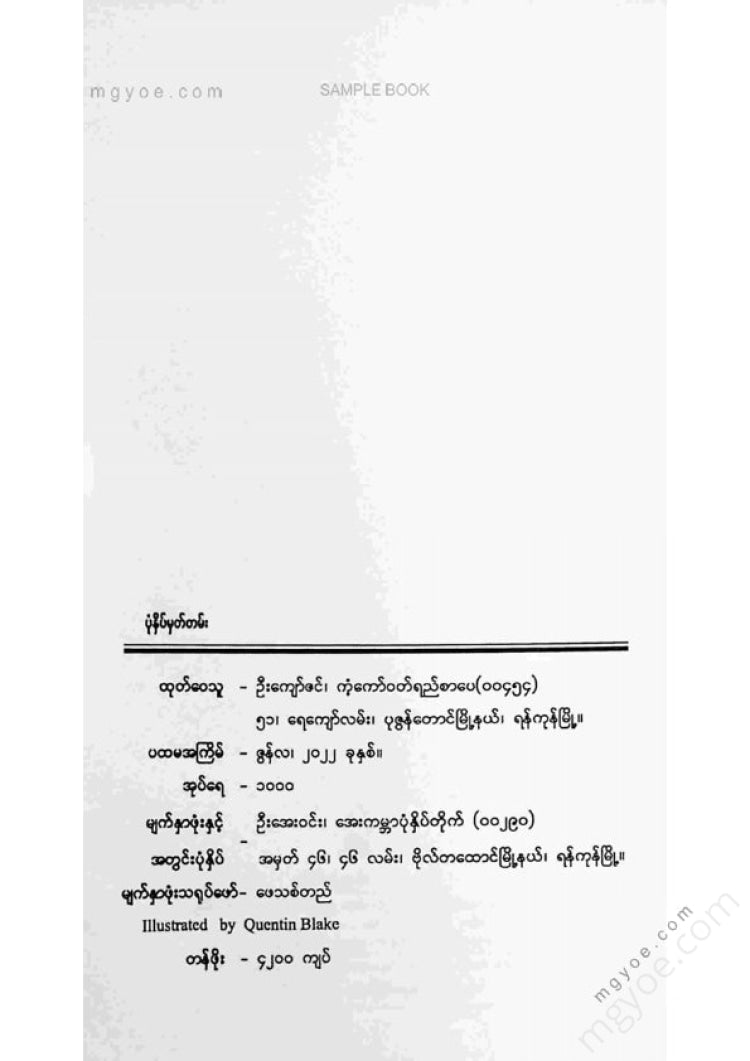 mgyoe.com SAMPLE BOOK
ပုံနှိပ်မှတ်တမ်း
ထုတ်ဝေသူ - ဦးကျော်ဇင်၊ ကံ့ကော်ဝတ်ရည်စာပေ(၀၀၄၅၄)
၅၁၊ ရေကျော်လမ်း၊ ပုဇွန်တောင်မြို့နယ်၊ ရန်ကုန်မြို့။
ပထမအကြိမ် - ဇွန်လ၊ ၂၀၂၂ ခုနှစ်။
အုပ်ရေ - ၁၀၀၀
မျက်နှာဖုံးနှင့် ဦးအေးဝင်း၊ အေးကမ္ဘာပုံနှိပ်တိုက် (၀၀၂၉၀)
အတွင်းပုံနှိပ် - အမှတ် ၄၆၊ ၄၆ လမ်း၊ ဗိုလ်တထောင်မြို့နယ်၊ ရန်ကုန်မြို့။
မျက်နှာဖုံးသရုပ်ဖော်- ဖေသစ်တည်
Illustrated by Quentin Blake
တန်ဖိုး - ၄၂၀၀ ကျပ်
mgyoe.com
mgyoe.com